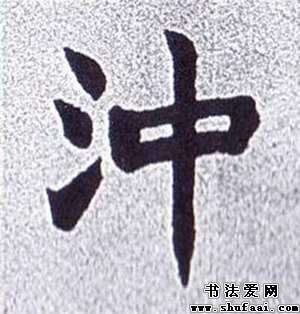 沖
书法爱网
www.shufaai.com